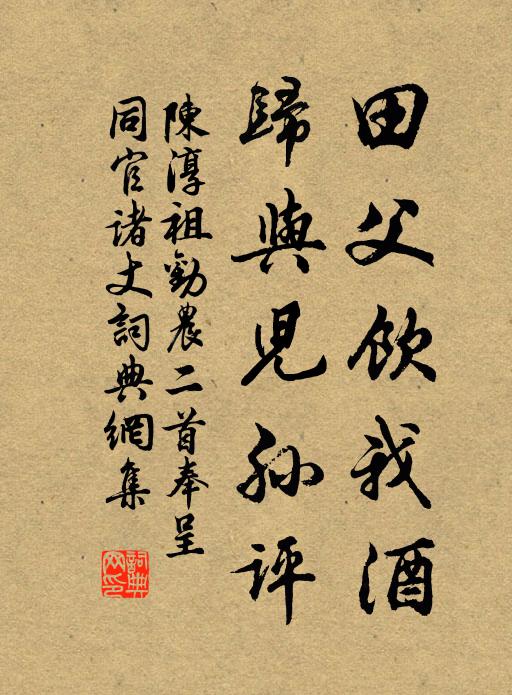 田父飲我酒
歸與兒孫評
陳淳祖勸農二首奉呈
同官諸丈詞典網集
詞典
网印